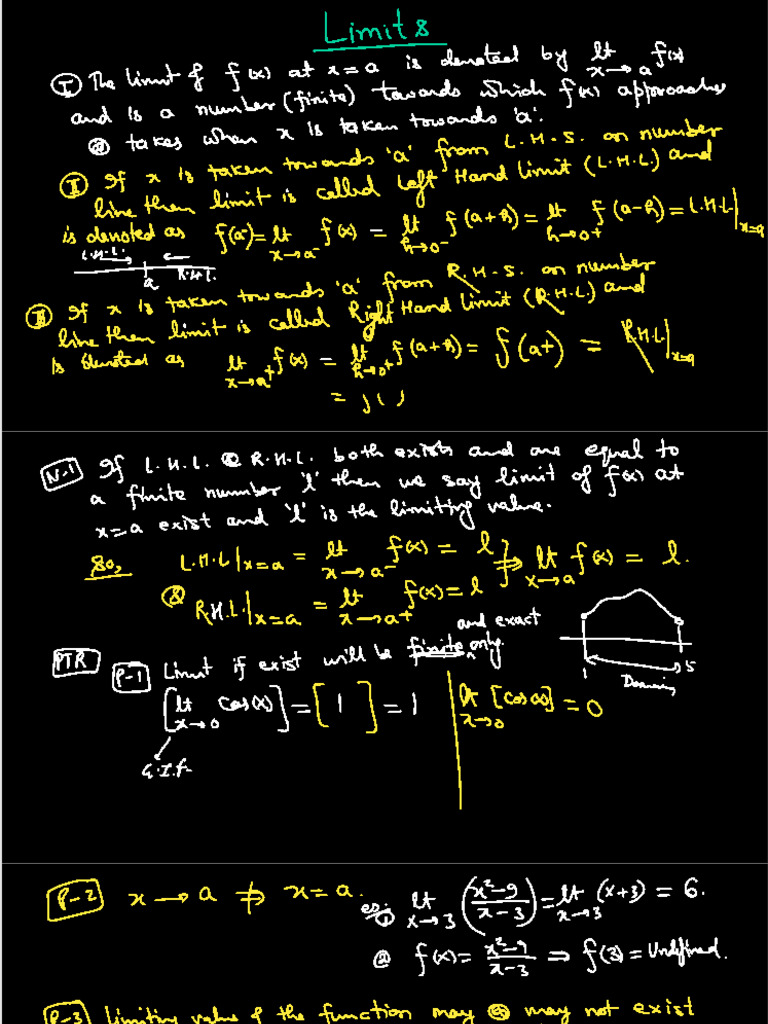 Limits
(I) The limit of f(x) at x=a is denoted by lt x→a f(x)
and is a number (finite) towards which f(x) approaches
@ takes when x is taken towards 'a'.
(II) If x is taken towards 'a' from L.H.S. on number
line then limit is called Left Hand Limit (L.H.L.) and
is denoted as f(a⁻) = lt x→a⁻ f(x) = lt h→0⁻ f(a+h) = lt h→0⁺ f(a-h) = L.H.L|x=a
L.H.L. → ← R.H.L.
a
If x is taken towards 'a' from R.H.S. on number
line then limit is called Right Hand Limit (R.H.L) and
is denoted as lt x→a⁺ f(x) = lt h→0⁺ f(a+h) = f(a+) = R.H.L|x=a
=
N-1 If L.H.L. @ R.H.L. both exists and are equal to
a finite number 'l' then we say limit of f(x) at
x=a exist and 'l' is the limiting value.
So, L.H.L|x=a = lt x→a⁻ f(x) = l } ⇒ lt x→a f(x) = l.
& R.H.L.|x=a = lt x→a+ f(x) = l
1 5
Domain
PTR P-1 Limit if exist will be finite and exact only.
[lt x→0 cos(x)] = [1] = 1 | lt x→0 [cos(x)] = 0
G.I.f
P-2 x→a ⇏ x=a. eg: ① lt x→3 (x²-9/x-3) = lt x→3 (x+3) = 6.
② f(x) = x²-9/x-3 ⇒ f(3) = Undefined.
P-3 Limiting value of the function may @ may not exist